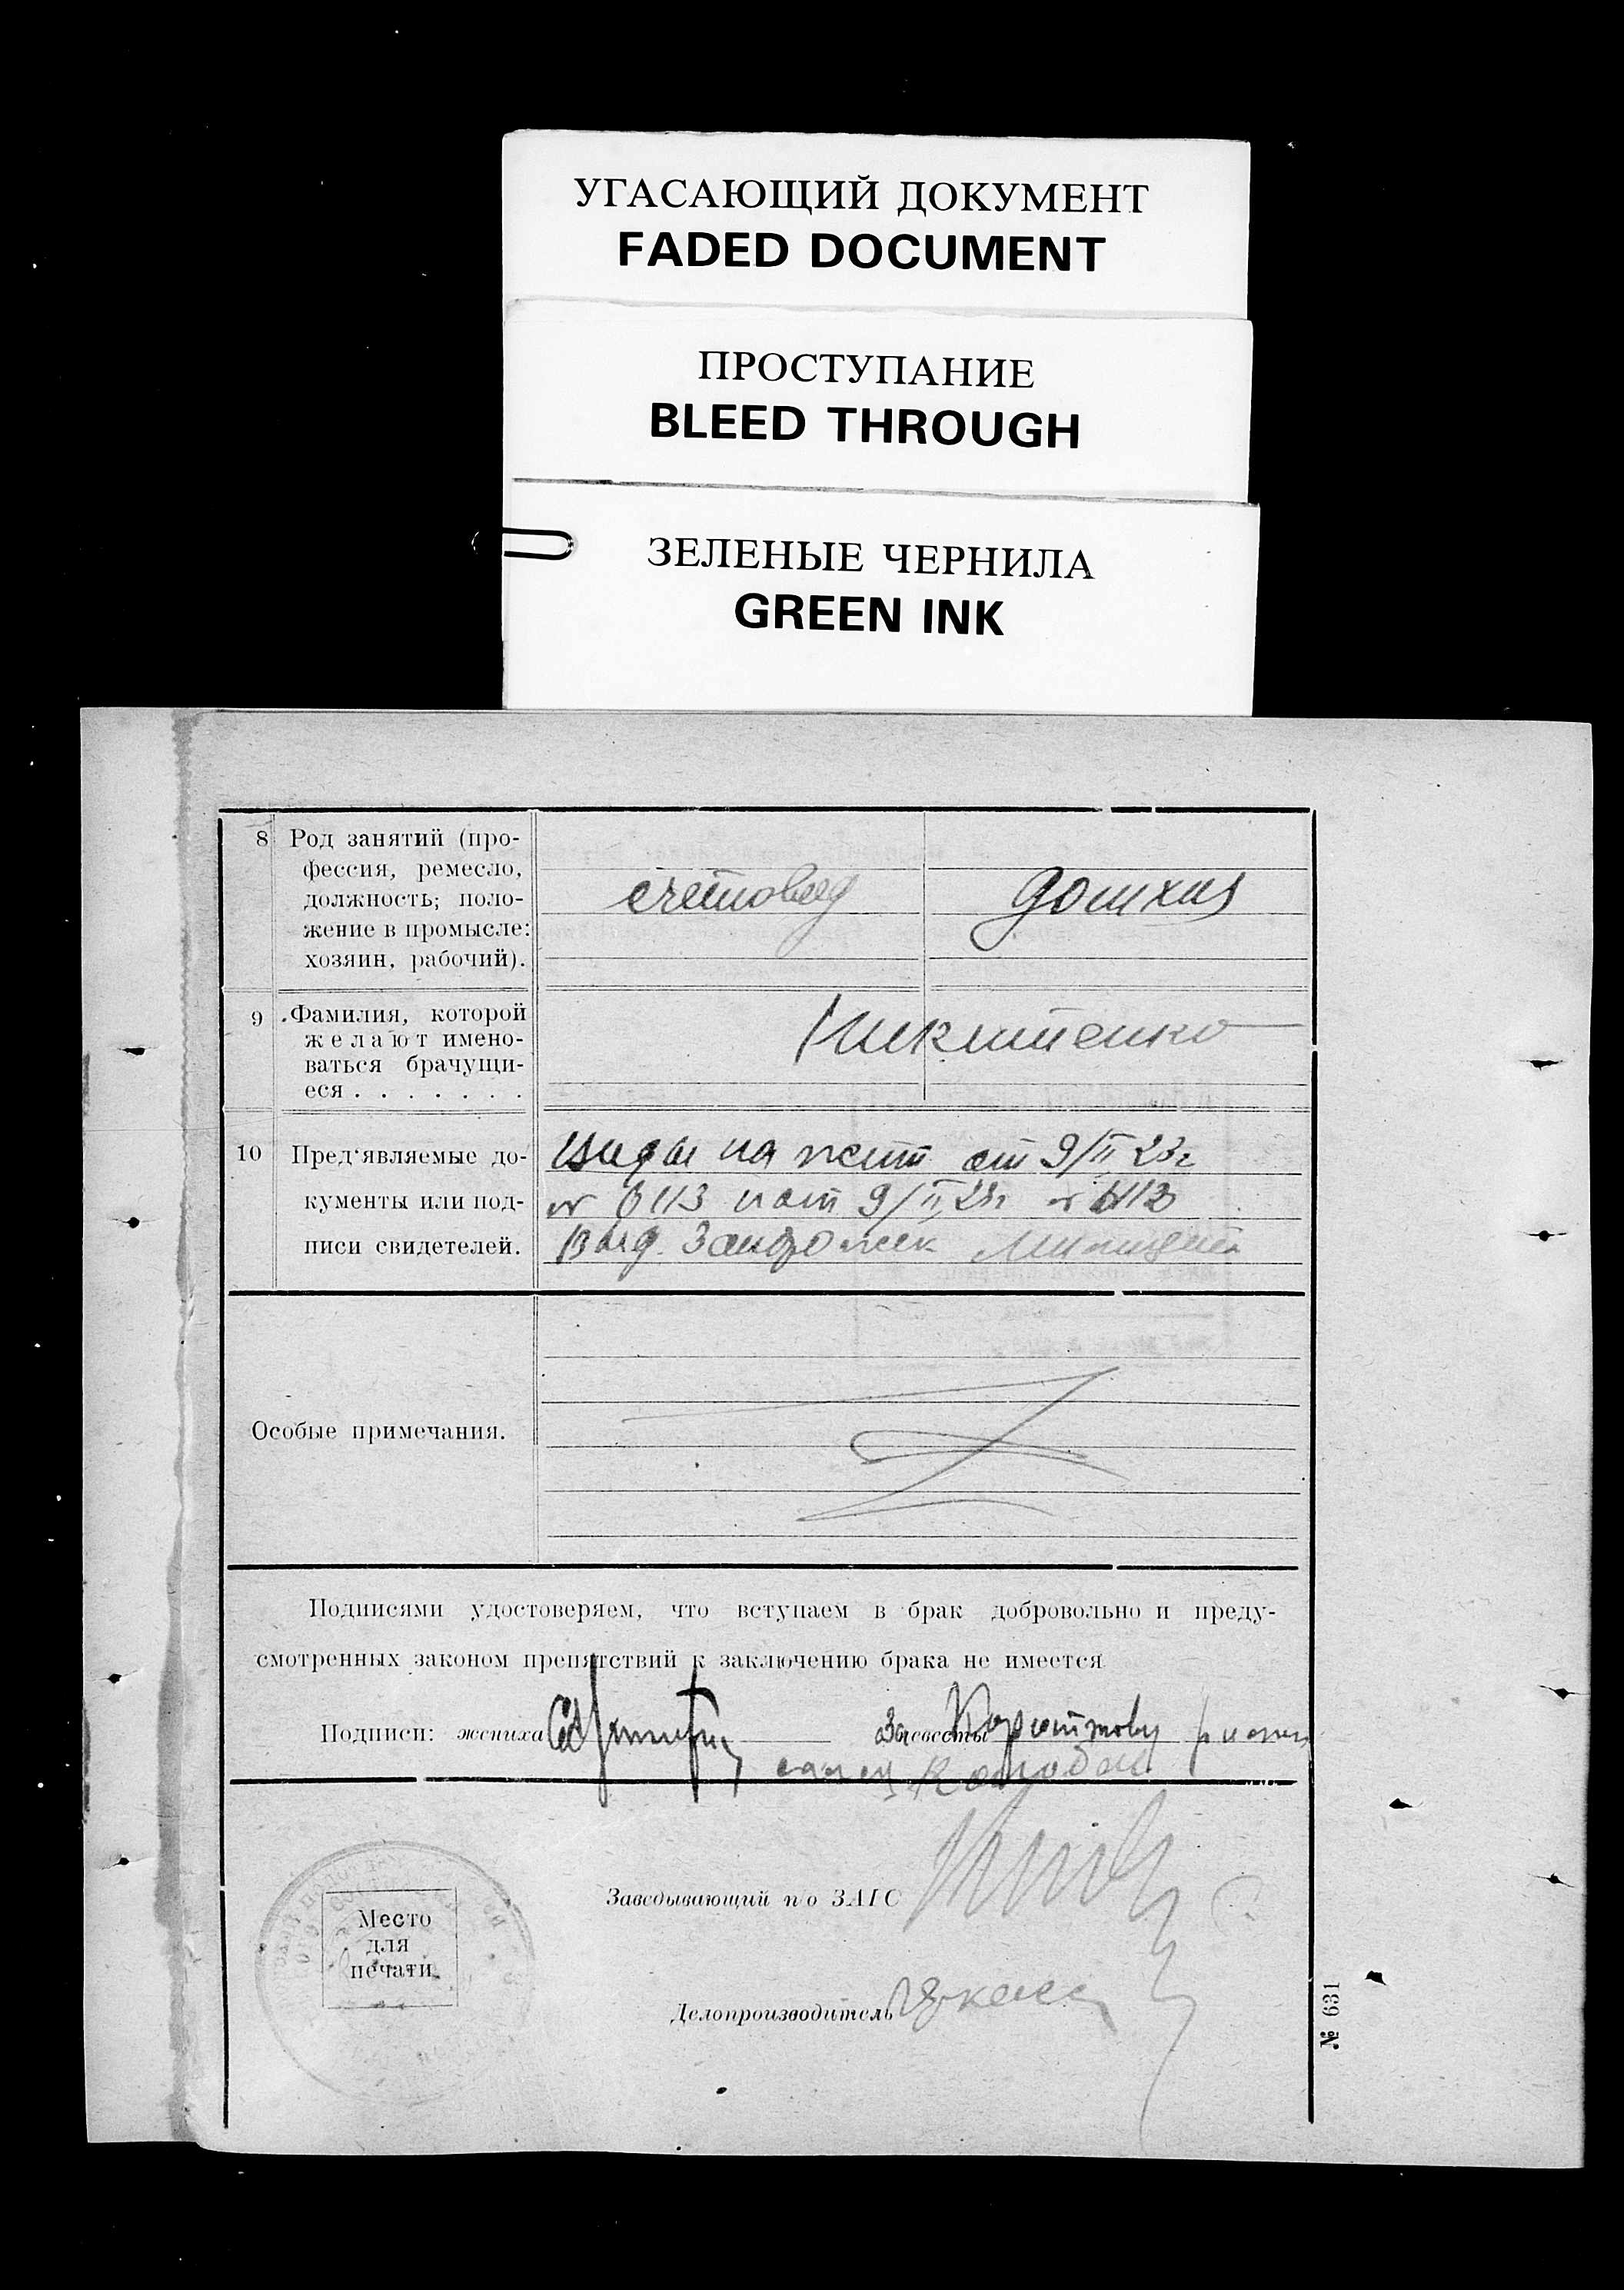 УГАСАЮЩИЙ ДОКУМЕНТ
FADED DOCUMENT
ПРОСТУПАНИЕ
BLEED THROUGH
ЗЕЛЕНЫЕ ЧЕРНИЛА
GREEN INK
8 Род занятий (про-
фессия, ремесло,
должность; поло-
жение в промысле:
хозяин, рабочий).
счетовод
домхоз
9 Фамилия, которой
желают имено-
ваться брачущи-
еся . . . . . . .
Никитенко
10 Пред'являемые до-
кументы или под-
писи свидетелей.
Виды на жит от 9/II 23г
№ 6113 и от 9/II 23г № 6112
Выд. Запорожск Милицией
Особые примечания.
Подписями удостоверяем, что вступаем в брак добровольно и преду-
смотренных законом препятствий к заключению брака не имеется
Подписи: жениха
За невесты
Заведывающий п/о ЗАГС
Делопроизводитель
Место
для
печати.
№ 631